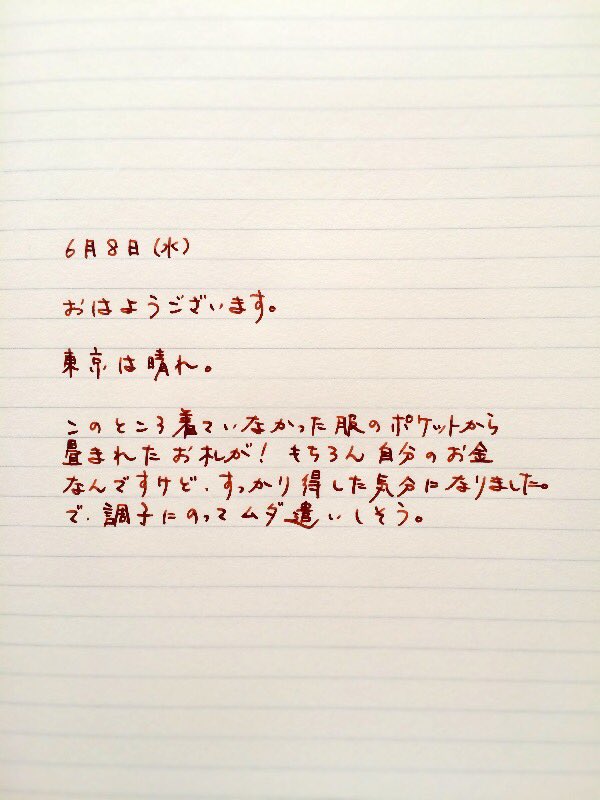 6月8日(水)
おはようございます。
東京は晴れ。
このところ着ていなかった服のポケットから
畳まれたお札が！もちろん自分のお金
なんですけど、すっかり得した気分になりました。
で、調子にのってムダ遣いしそう。